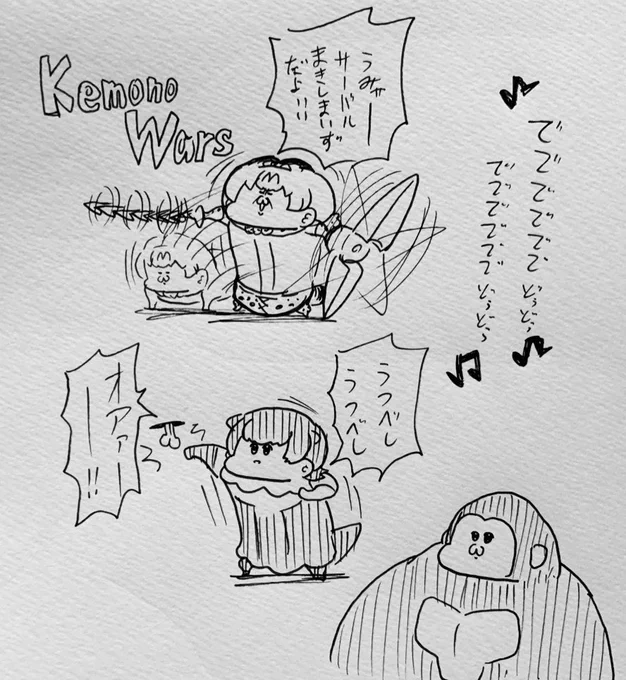 Kemono
Wars
うみゃー
サーバル
まきしまいず
だよ!!
でででででで、どぅどぅ
でででででで、どぅどぅ
うつべし
うつべし
オアァー!!